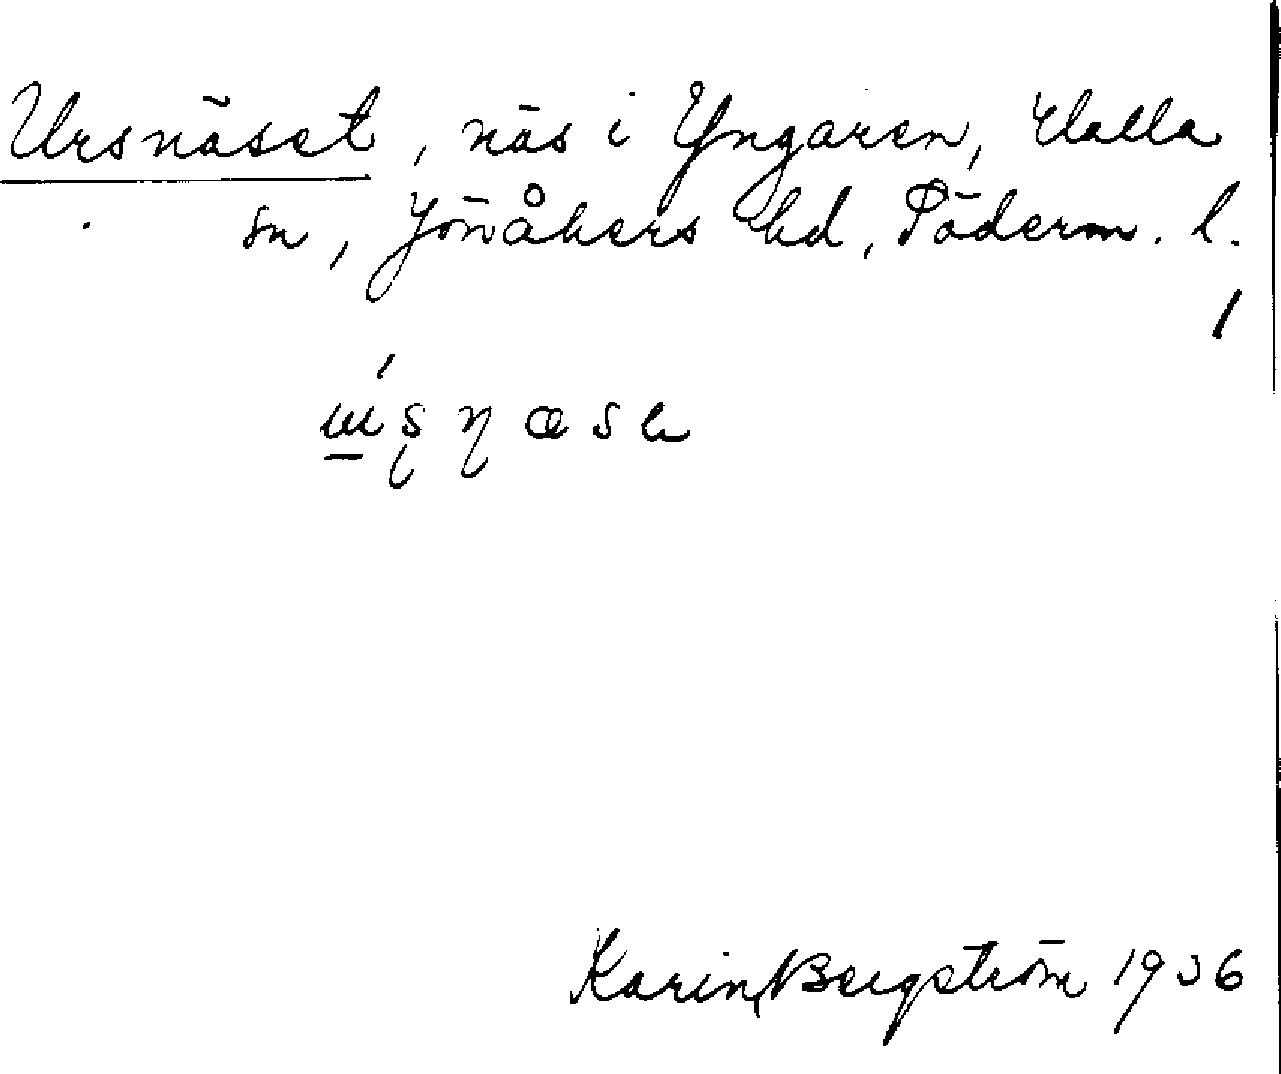 Ursnäset, näs i Yngaren, Halla
sn, Jönåkers hd, Söderm. l.
Karin Bergström 1936